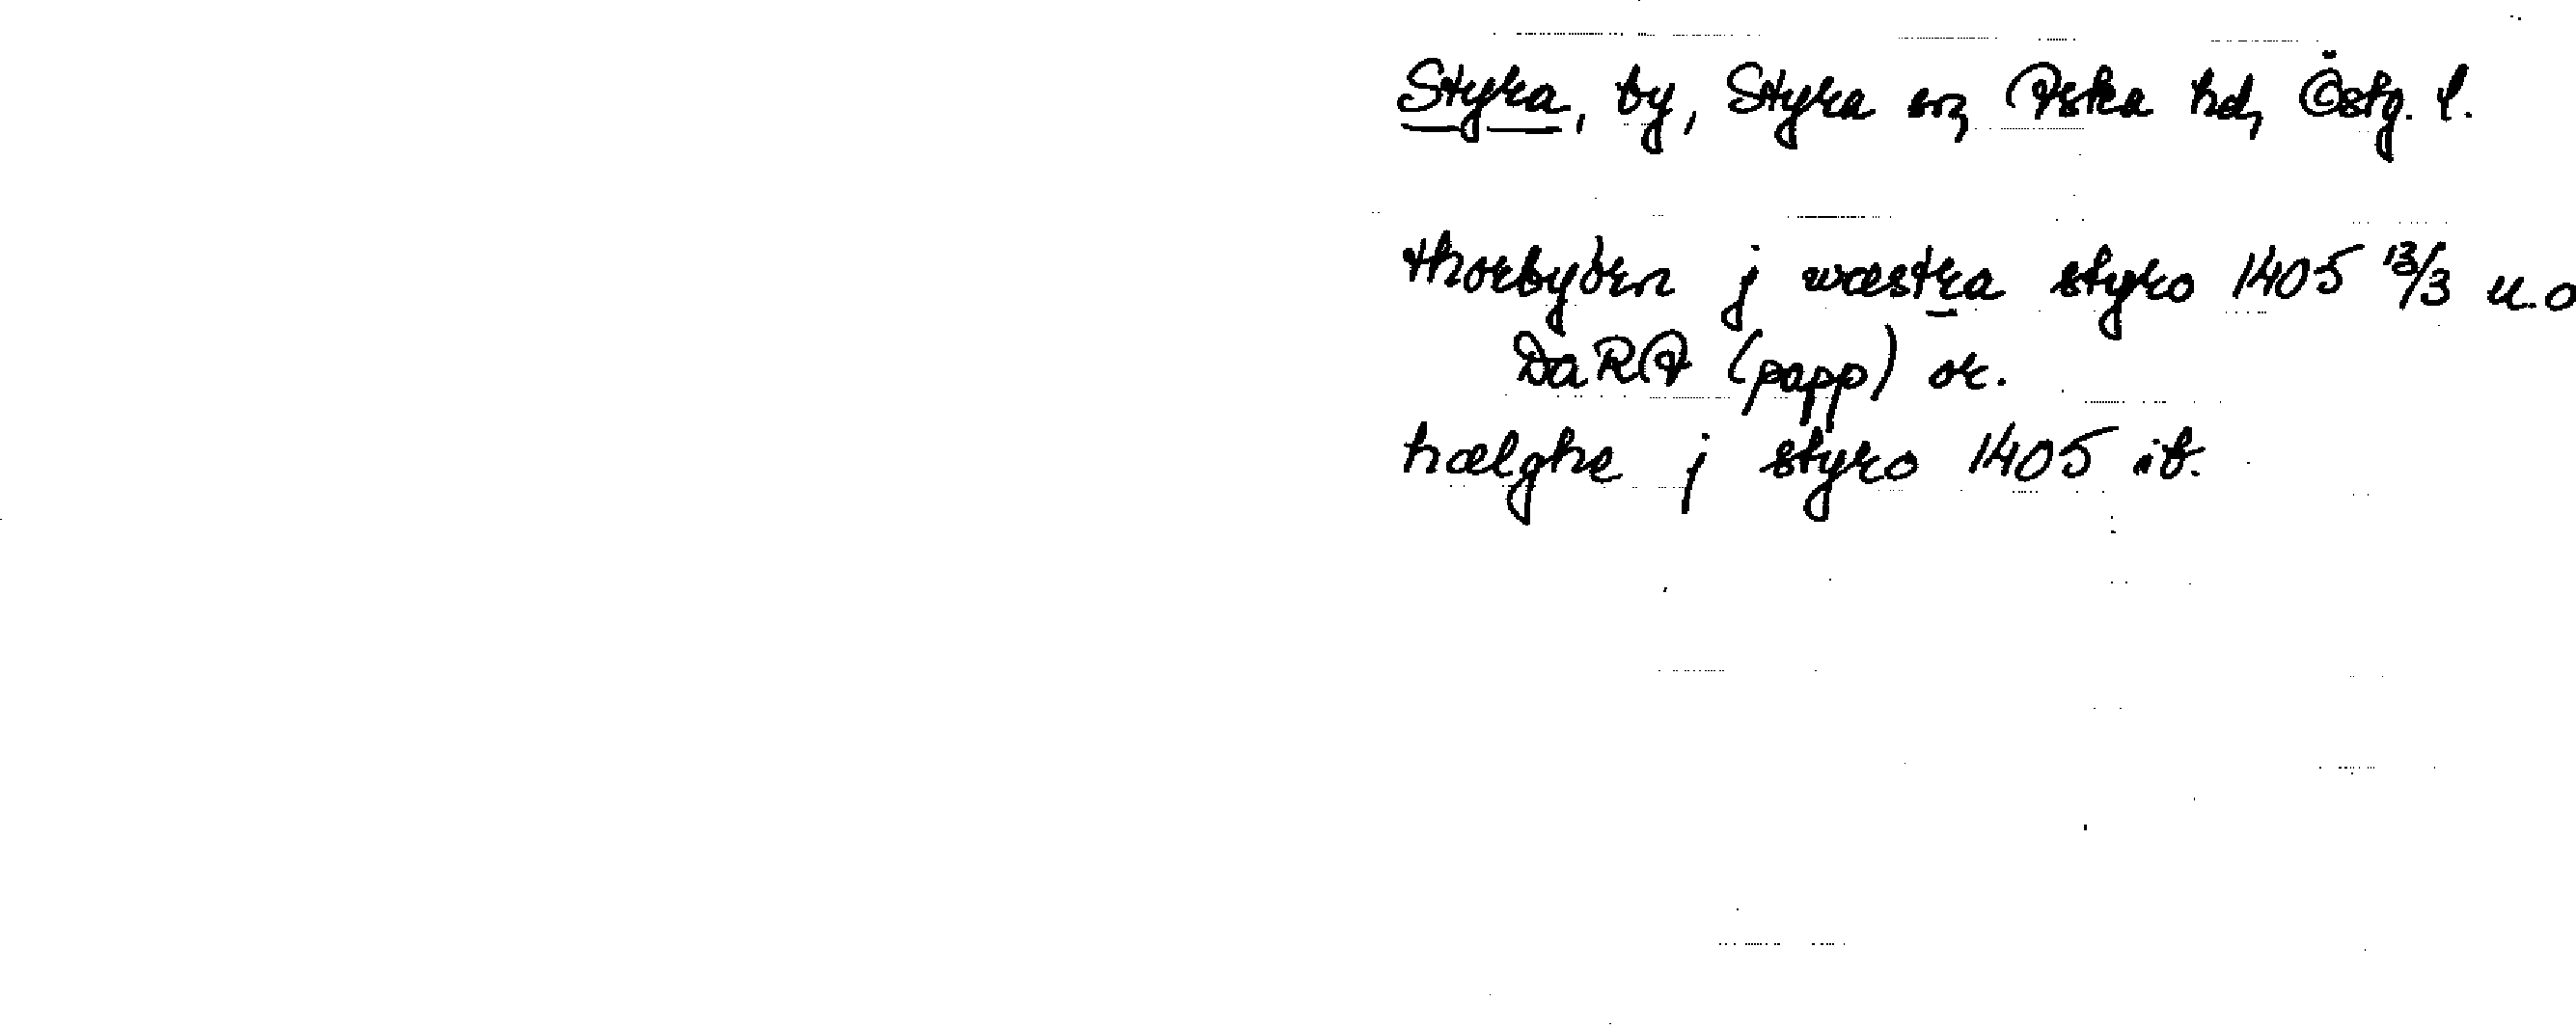 Styra, by, Styra sn, Aska hd, Östg. l.
thorbyørn j wæstra styro 1405 13/3 u.o
DaRA (papp) or.
hælghe j styro 1405 ib.